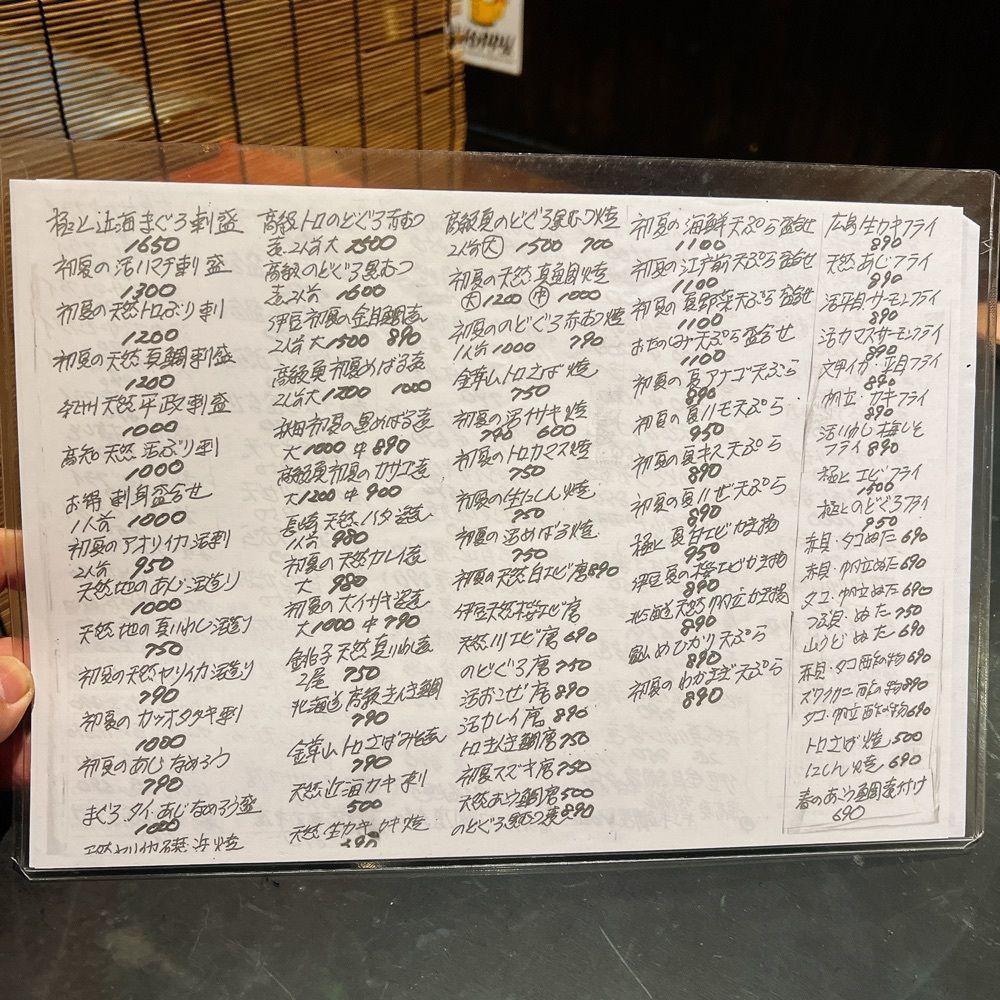 極上近海まぐろ刺盛
1650
初夏の活ハマチ刺盛
1300
初夏の天然トロぶり刺
1200
初夏の天然真鯛刺盛
1200
紀州天然平政刺盛
1000
高知天然活ぶり刺
1000
お得刺身盛合せ
1人前 1000
初夏のアオリイカ活刺
2人前 950
天然地のあじ活造り
1000
天然地の真いわし活造り
750
初夏の天然ヤリイカ活造り
790
初夏のカツオタタキ刺
1000
初夏のあじなめろう
790
まぐろ、タイ、あじなめろう盛
1000
高級トロのどぐろ赤むつ
煮、2人前大 2500
高級のどぐろ黒むつ
煮、2人前 1600
伊豆初夏の金目鯛煮
2人前大1500 890
高級真初夏めばる煮
2人前大1200 1000
秋田初夏の黒めばる煮
大1000中890
高級真初夏のカサゴ煮
大1200中900
長崎天然ハタ姿煮
1人前 980
初夏の天然カレイ煮
大 980
初夏の大イサキ姿煮
大1000中790
銚子天然真いわし煮
2尾 750
北海道高級きんき鯛
790
金華山トロさばみそ煮
790
天然近海カキ刺
500
天然生カキ
690
高級真のどぐろ黒むつ焼
2人前大 1500 700
初夏の天然真鯛焼
大1200 中1000
初夏ののどぐろ赤むつ焼
1人前1000 790
金華山トロさば焼
750
初夏の活イサキ焼
790 600
初夏のトロカマス焼
750
初夏の生にしん焼
750
初夏の活めばる焼
750
初夏の天然白エビ唐890
伊豆天然桜エビ唐
天然川エビ唐 690
のどぐろ唐 750
活おこぜ唐 890
活カレイ唐 890
トロきんき鯛唐750
初夏スズキ唐750
天然あこう鯛唐500
のどぐろ黒むつ煮890
初夏の海鮮天ぷら盛合せ
1100
初夏の江戸前天ぷら盛合せ
1100
初夏の夏野菜天ぷら盛合せ
1100
おたのしみ天ぷら盛合せ
1100
初夏の夏アナゴ天ぷら
890
初夏の夏ハモ天ぷら
950
初夏の夏キス天ぷら
890
初夏の夏ハゼ天ぷら
890
極上真甘エビかき揚
950
伊豆夏の桜エビかき揚
890
北海道天然帆立かき揚
890
めひかり天ぷら
890
初夏のわかさぎ天ぷら
890
広島生カキフライ
890
天然あじフライ
890
活平目・サーモンフライ
890
活カマス・サーモンフライ
890
文甲イカ・平目フライ
890
帆立・カキフライ
890
活いわし梅しそ
フライ 890
極上エビフライ
1500
極上のどぐろフライ
950
赤貝・タコぬた 690
赤貝・帆立ぬた690
タコ・帆立ぬた690
つぶ貝・ぬた 750
山うどぬた 690
赤貝・タコ酢の物690
ズワイガニ酢の物890
タコ・帆立酢の物690
トロさば焼 500
にしん焼 690
春のあこう鯛煮付け
690